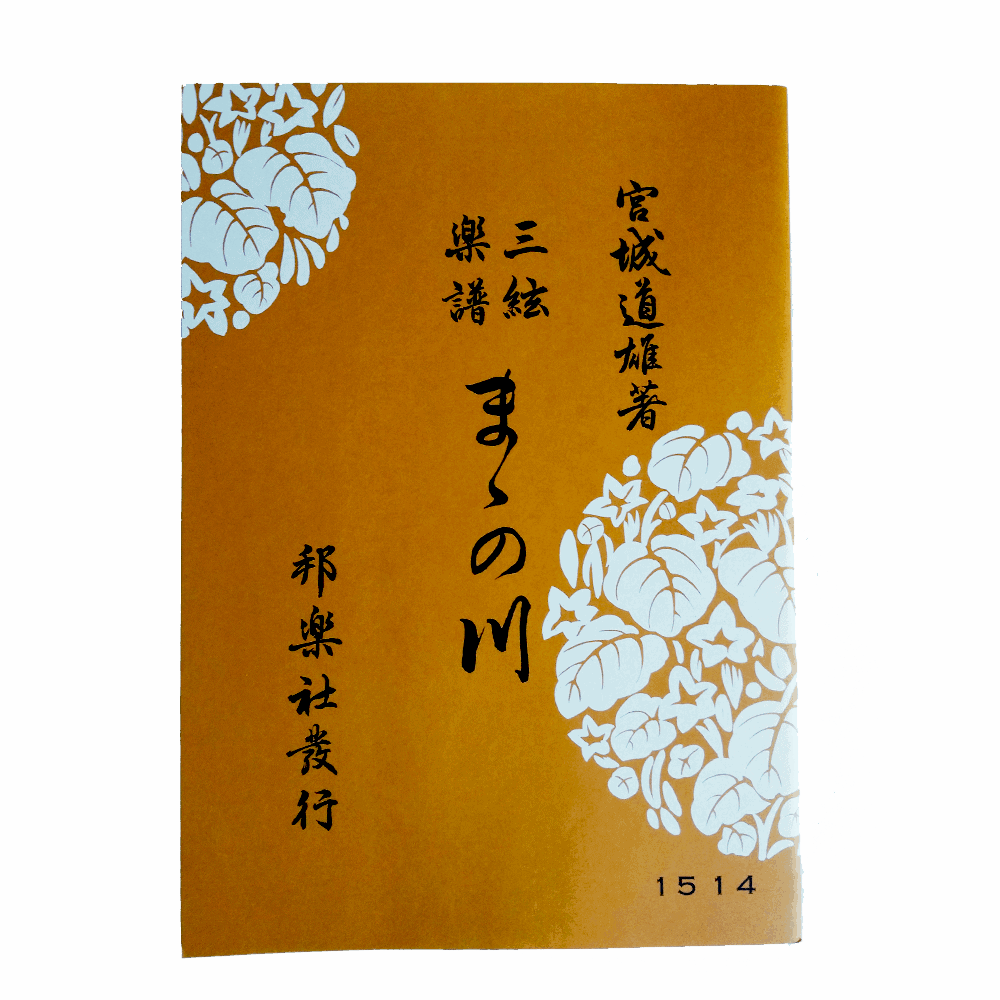 宮城道雄著
三絃
楽譜
まゝの川
邦楽社發行
1514